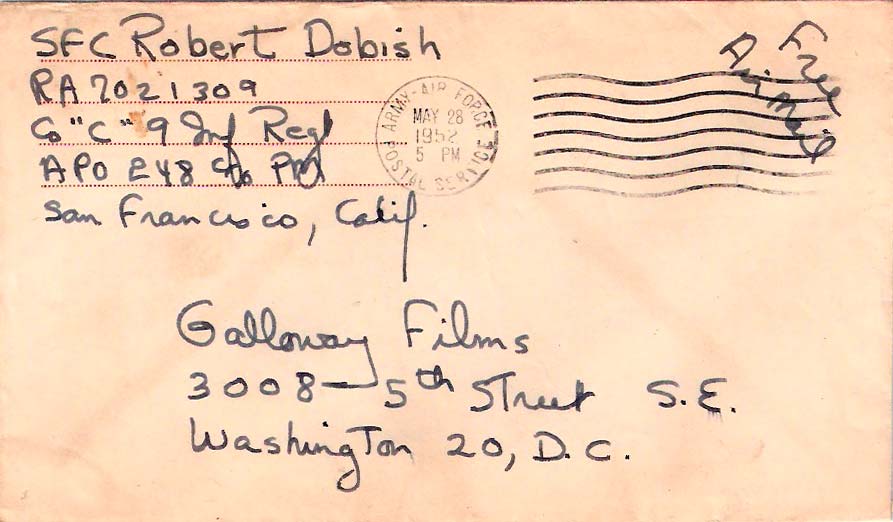 SFC Robert Dobish
RA 7021309
Co "C" 9 Inf Regt
APO 248 c/o PM
San Francisco, Calif.
ARMY-AIR FORCE
POSTAL SERVICE
MAY 28
1952
5 PM
Free
Air Mail
Galloway Films
3008-5th Street S.E.
Washington 20, D.C.